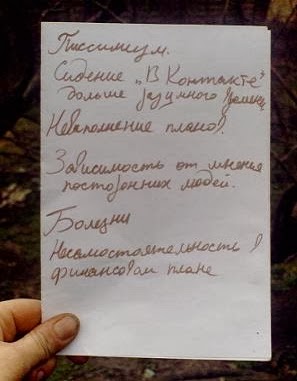 Писсимизм.
Сидение „В Контакте"
дольше разумного времени
Невыполнение планов.
Зависимость от мнения
посторонних людей.
Болезни
Несамостоятельность в
финансовом плане